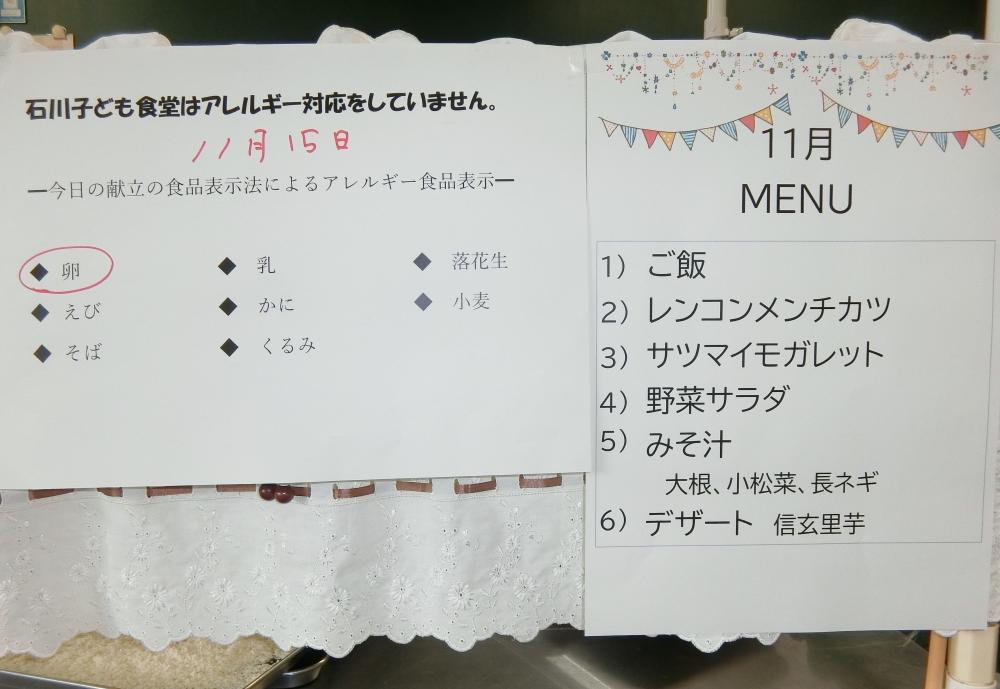 石川子ども食堂はアレルギー対応をしていません。
11月15日
ー今日の献立の食品表示法によるアレルギー食品表示ー
◆ 卵 ◆ 乳 ◆ 落花生
◆ えび ◆ かに ◆ 小麦
◆ そば ◆ くるみ
11月
MENU
1）ご飯
2）レンコンメンチカツ
3）サツマイモガレット
4）野菜サラダ
5）みそ汁
大根、小松菜、長ネギ
6）デザート 信玄里芋